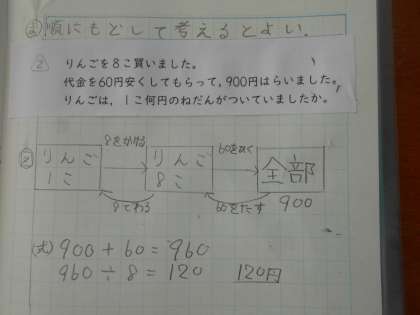 ま 順にもどして考えるとよい.
② りんごを8こ買いました。
代金を60円安くしてもらって,900円はらいました。
りんごは,1こ何円のねだんがついていましたか。
8をかける 60をひく
図 りんご1こ りんご8こ 全部
8でわる 60をたす 900
(式) 900+60=960
960÷8=120 120円